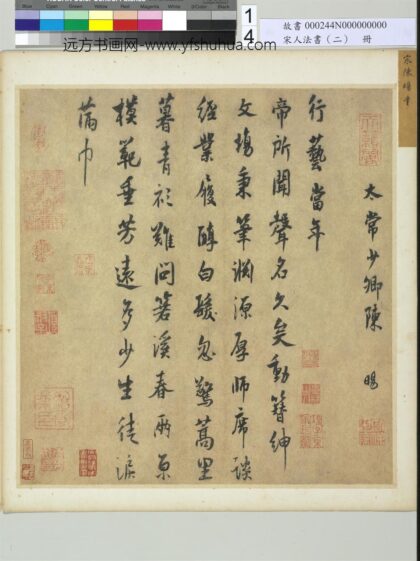 Cyan Green Yellow Red Magenta White 3/Color Black
远方书画网-www.yfshuhua.com
1
4
故書 000244N000000000
宋人法書(二) 冊
太常少卿陳 暘
行藝當年
帝所聞聲名久矣動簪紳
文場秉筆淵源厚師席談
經業履醇白髮忽驚蒿里
暮青衫難問箬溪春兩京
模範垂芳遠多少生徒淚
滿巾